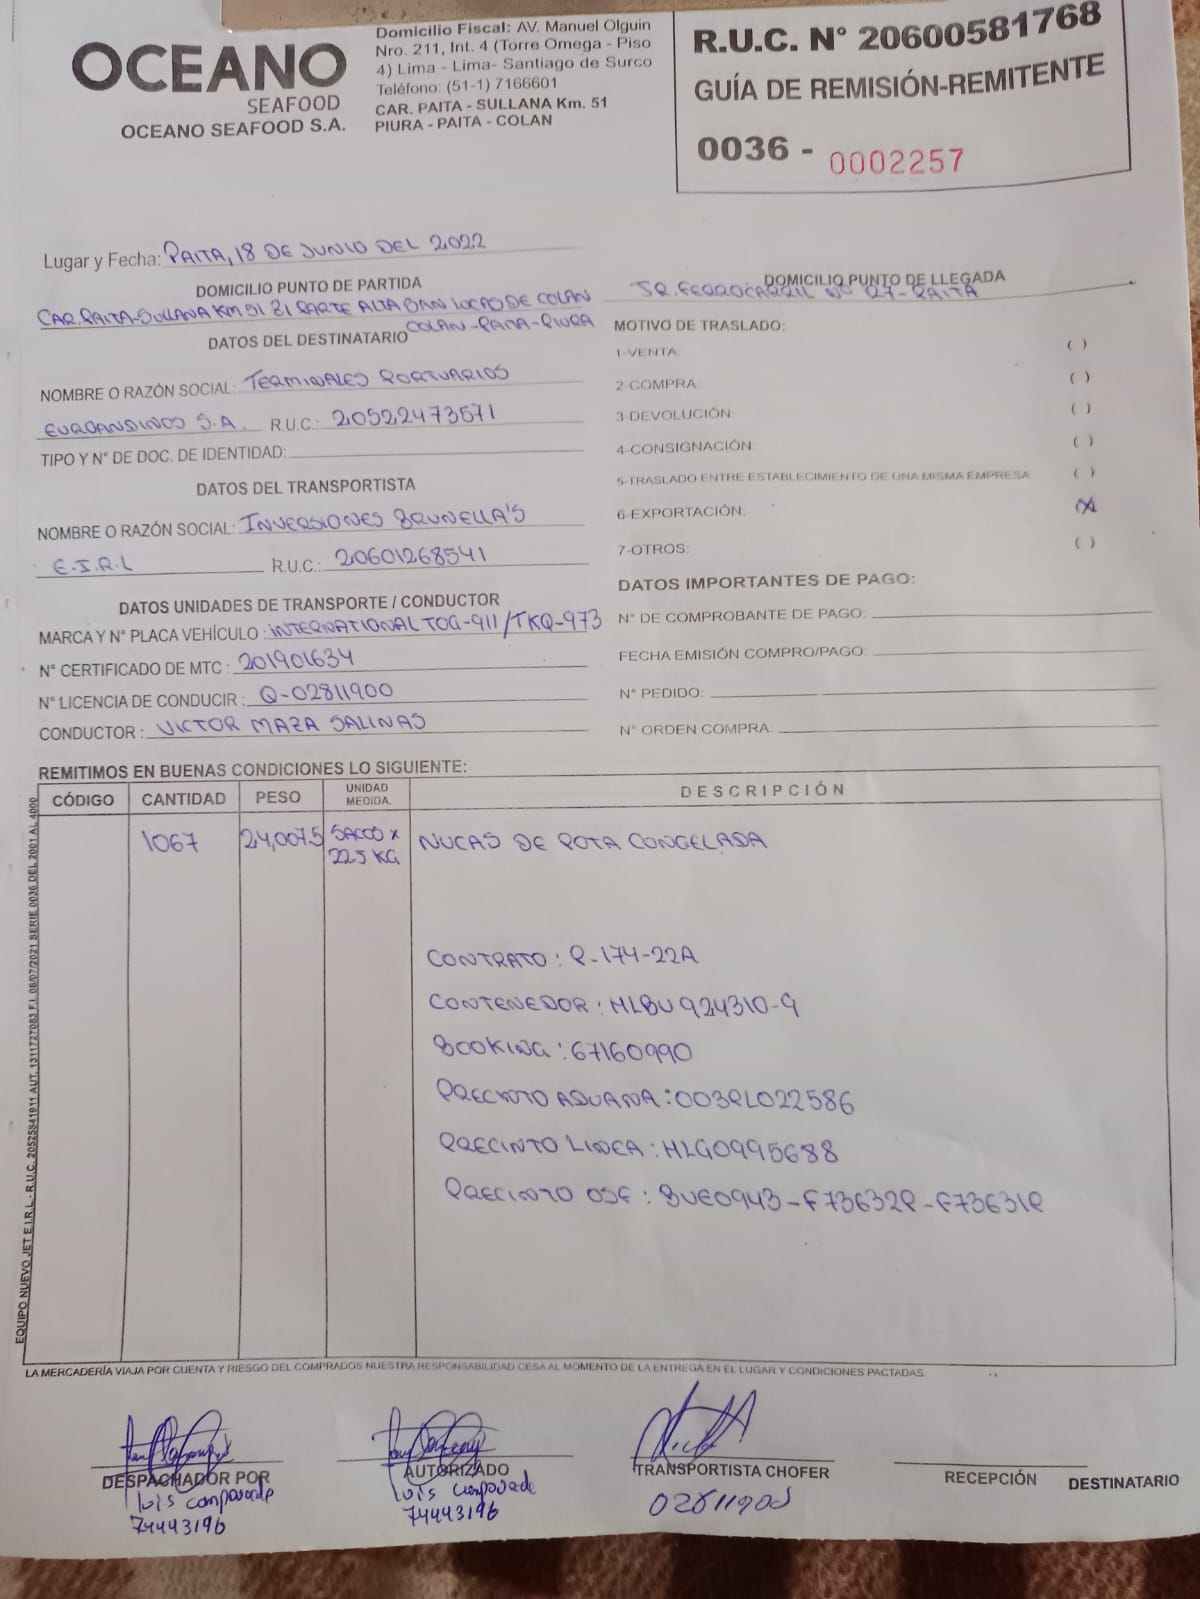 OCEANO
SEAFOOD
OCEANO SEAFOOD S.A.
Domicilio Fiscal: AV. Manuel Olguin
Nro. 211, Int. 4 (Torre Omega - Piso
4) Lima - Lima- Santiago de Surco
Teléfono: (51-1) 7166601
CAR. PAITA - SULLANA Km. 51
PIURA - PAITA - COLAN
R.U.C. N° 20600581768
GUÍA DE REMISIÓN-REMITENTE
0036 - 0002257
Lugar y Fecha: PAITA, 18 DE JUNIO DEL 2022
DOMICILIO PUNTO DE PARTIDA
CAR. PAITA-SULLANA KM 51 Z1 PARTE ALTA SAN LUCAS DE COLAN
COLAN-PAITA-PIURA
DOMICILIO PUNTO DE LLEGADA
JR. FERROCARRIL N° 127-PAITA
DATOS DEL DESTINATARIO
NOMBRE O RAZÓN SOCIAL: TERMINALES PORTUARIOS
EUROANDINOS S.A. R.U.C.: 20522473571
TIPO Y N° DE DOC. DE IDENTIDAD:
DATOS DEL TRANSPORTISTA
NOMBRE O RAZÓN SOCIAL: INVERSIONES BRUNELLA'S
E.I.R.L R.U.C.: 20601268541
DATOS UNIDADES DE TRANSPORTE / CONDUCTOR
MARCA Y N° PLACA VEHÍCULO: INTERNATIONAL TOG-911/TKQ-973
N° CERTIFICADO DE MTC: 201901634
N° LICENCIA DE CONDUCIR: Q-02811900
CONDUCTOR: VICTOR MAZA SALINAS
MOTIVO DE TRASLADO:
1-VENTA: ( )
2-COMPRA ( )
3-DEVOLUCIÓN: ( )
4-CONSIGNACIÓN: ( )
5-TRASLADO ENTRE ESTABLECIMIENTO DE UNA MISMA EMPRESA ( )
6-EXPORTACIÓN: (X)
7-OTROS: ( )
DATOS IMPORTANTES DE PAGO:
N° DE COMPROBANTE DE PAGO:
FECHA EMISIÓN COMPRO/PAGO:
N° PEDIDO:
N° ORDEN COMPRA:
REMITIMOS EN BUENAS CONDICIONES LO SIGUIENTE:
CÓDIGO CANTIDAD PESO UNIDAD MEDIDA. DESCRIPCIÓN
1067 24,007.5 SACOS x 22.5 KG NUCAS DE POTA CONGELADA
CONTRATO: P-174-22A
CONTENEDOR: HLBU 924310-9
BOOKING: 67160990
PRECINTO ADUANA: 003PL022586
PRECINTO LINEA: HLG0995688
PRECINTO OSF: BUE0943-F73632P-F73631P
EQUIPO NUEVO JET E.I.R.L - R.U.C. 20525841911 AUT. 1311727083 F.I. 08/07/2021 SERIE 0036 DEL 2001 AL 4000
LA MERCADERÍA VIAJA POR CUENTA Y RIESGO DEL COMPRADOS NUESTRA RESPONSABILIDAD CESA AL MOMENTO DE LA ENTREGA EN EL LUGAR Y CONDICIONES PACTADAS.
DESPACHADOR POR
Luis Campoverde
74443196
AUTORIZADO
Luis Campoverde
74443196
TRANSPORTISTA CHOFER
02811900
RECEPCIÓN DESTINATARIO